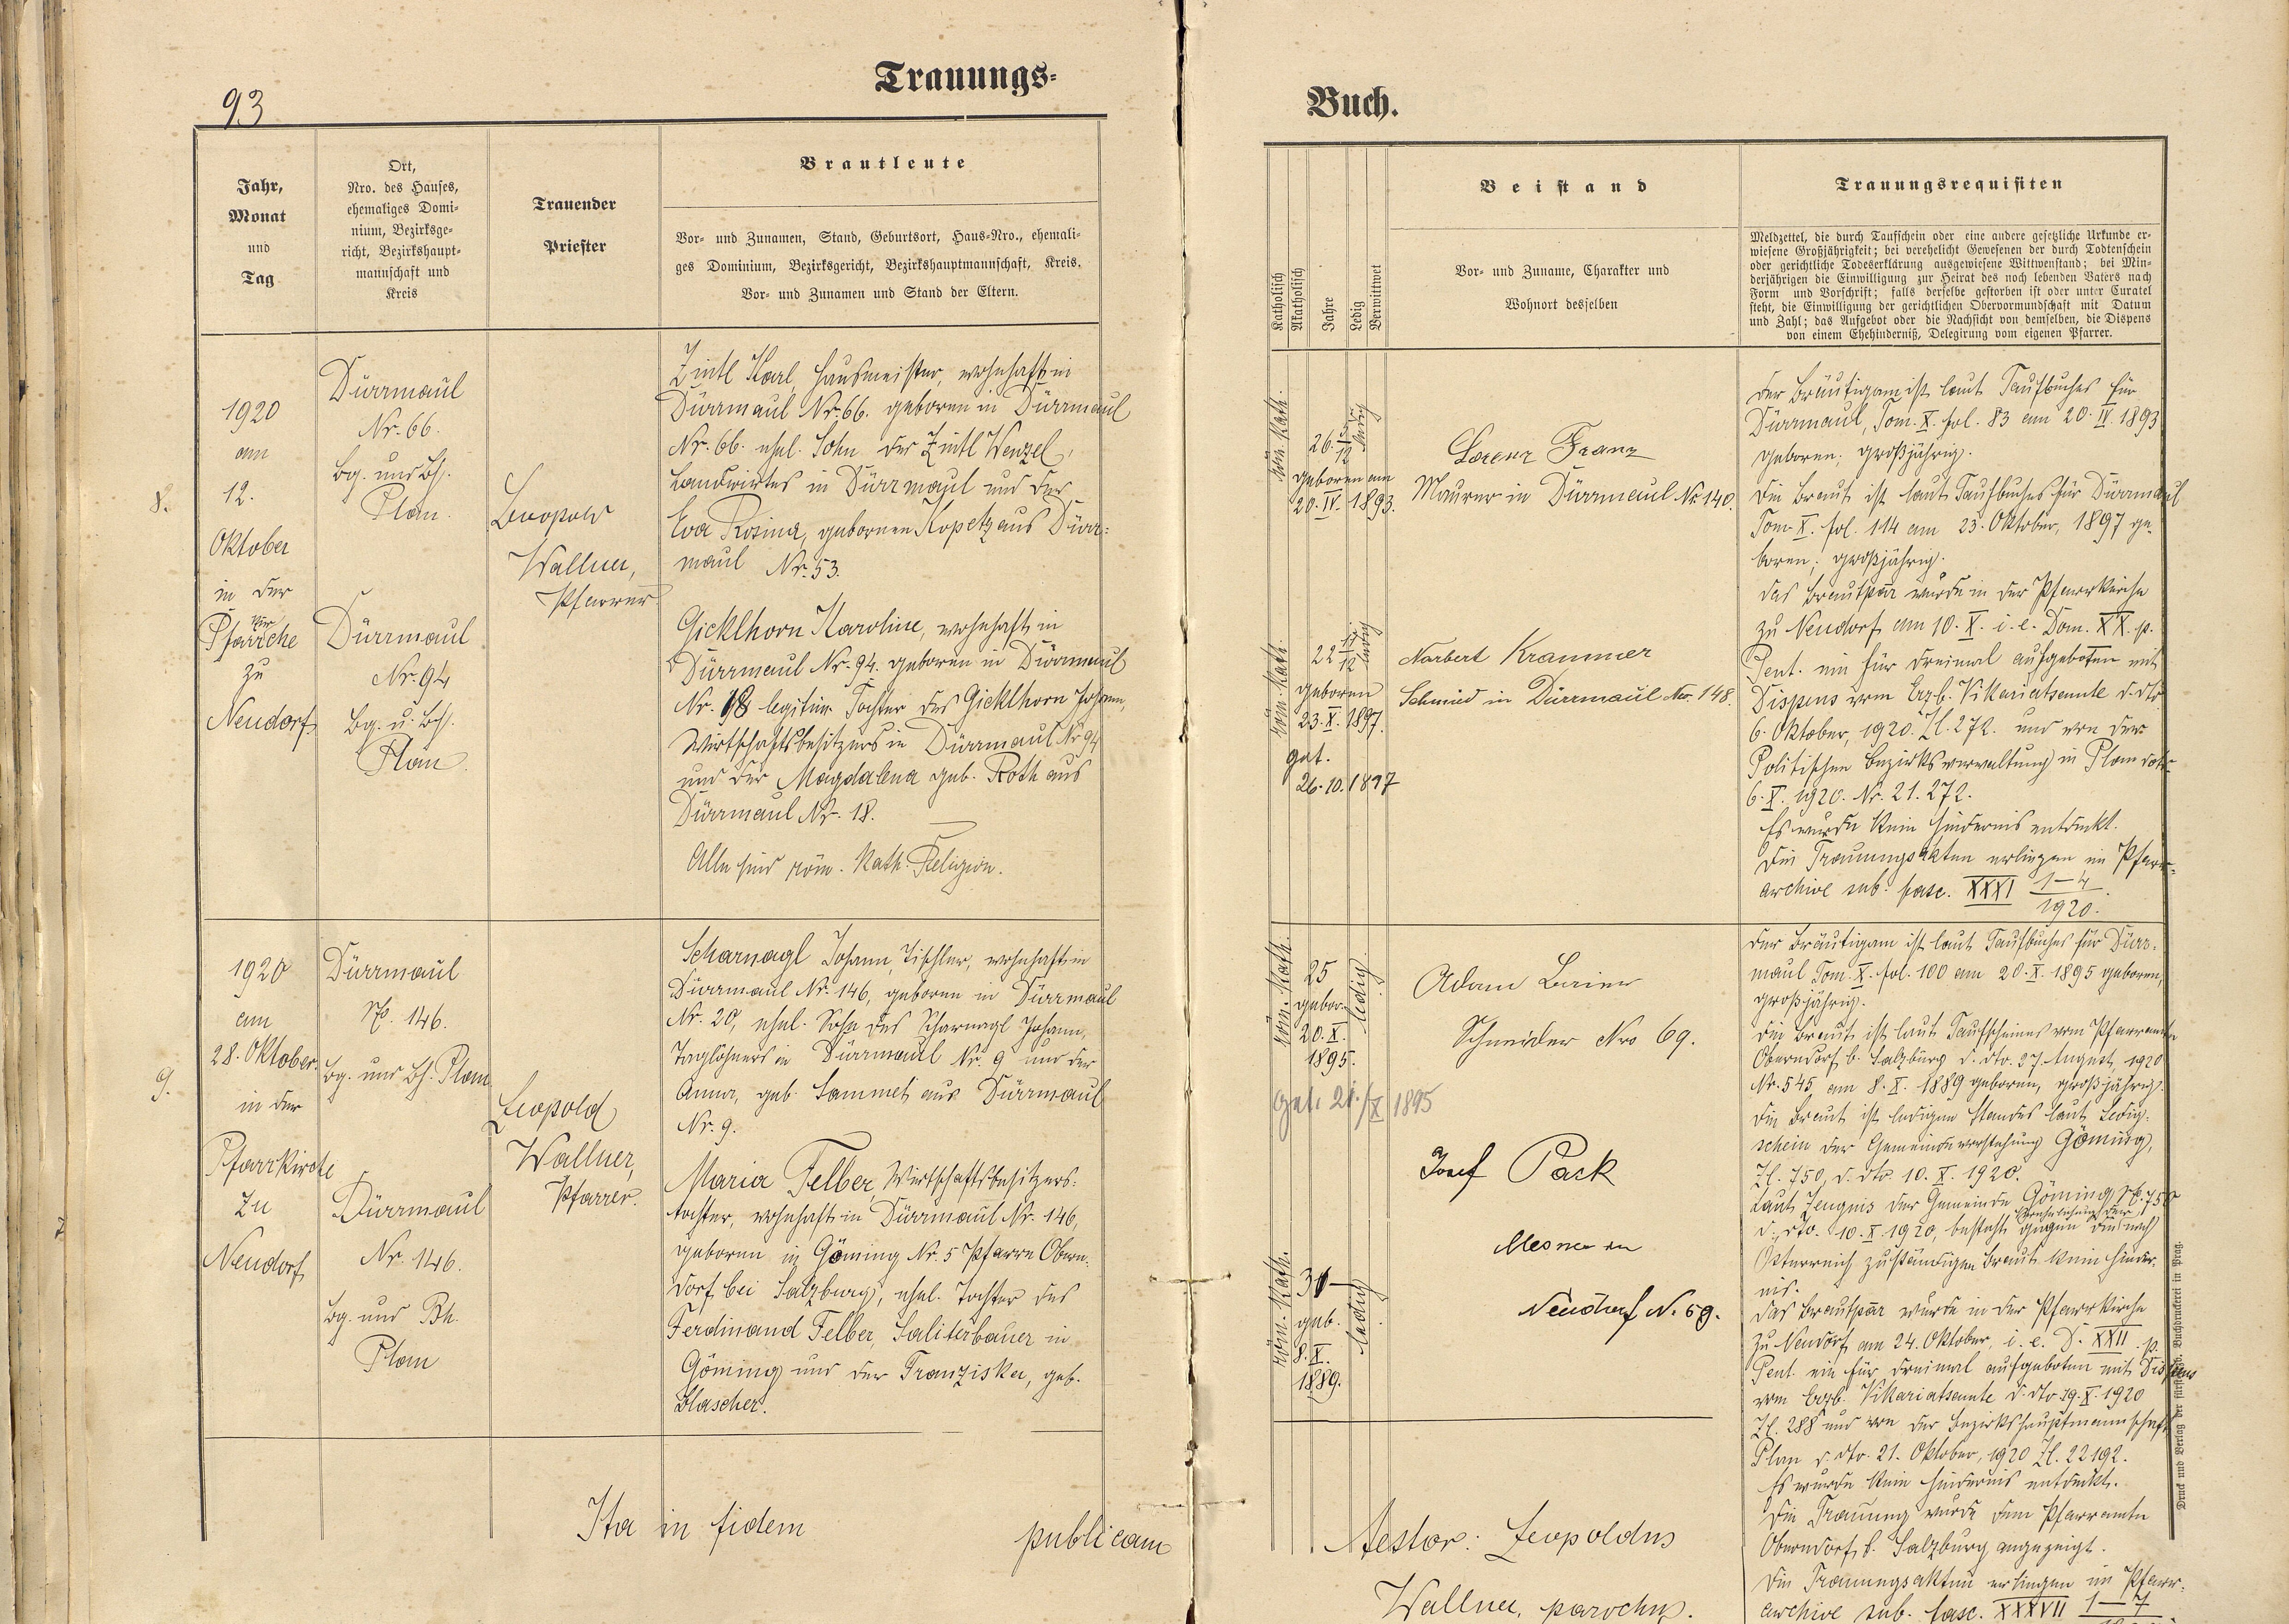 93
Trauungs-
Jahr,
Monat
und
Tag
Ort,
Nro. des Hauses,
ehemaliges Domi-
nium, Bezirksge-
richt, Bezirkshaupt-
mannschaft und
Kreis
Trauender
Priester
Brautleute
Vor- und Zunamen, Stand, Geburtsort, Haus-Nro., ehemali-
ges Dominium, Bezirksgericht, Bezirkshauptmannschaft, Kreis.
Vor- und Zunamen und Stand der Eltern.
8.
1920
am
12.
Oktober
in der
Pfarrkirche
zu
Neudorf
Dürrmaul
Nr. 66.
Bg. und Bh.
Plan.
Dürrmaul
Nr. 94
Bg. u. Bh.
Plan.
Leopold
Wallner,
Pfarrer
Zintl Karl, Hausmeister, wohnhaft in
Dürrmaul Nr. 66. geboren in Dürrmaul
Nr. 66. ehel. Sohn des Zintl Wenzel,
Landwirtes in Dürrmaul und der
Eva Rosina, gebornen Kopetz aus Dürr-
maul Nr. 53.
Gicklhorn Karoline, wohnhaft in
Dürrmaul Nr. 94. geboren in Dürrmaul
Nr. 18 legitime Tochter des Gicklhorn Johann,
Wirtschaftsbesitzers in Dürrmaul Nr 94
und der Magdalena geb. Roth aus
Dürrmaul Nr. 18.
Alle sind röm. kath. Religion.
9.
1920
am
28. Oktober
in der
Pfarrkirche
zu
Neudorf
Dürrmaul
No. 146.
Bg. und Bh. Plan
Dürrmaul
Nr. 146.
Bg. und Bh.
Plan
Leopold
Wallner,
Pfarrer.
Scharnagl Johann, Tischler, wohnhaft in
Dürrmaul Nr. 146, geboren in Dürrmaul
Nr. 20, ehel. Sohn des Scharnagl Johann,
Taglöhners in Dürrmaul Nr. 9 und der
Anna, geb. Sammet aus Dürrmaul
Nr. 9.
Maria Felber, Wirtschaftsbesitzers-
tochter, wohnhaft in Dürrmaul Nr. 146,
geboren in Göming Nr. 5 Pfarre Obern-
dorf bei Salzburg, ehel. Tochter des
Ferdinand Felber, Saliterbauer in
Göming und der Franziska, geb.
Blascher.
Ita in fidem publicam
Buch.
Katholisch
Akatholisch
Jahre
Ledig
Verwittwet
Beistand
Vor- und Zuname, Charakter und
Wohnort desselben
Trauungsrequisiten
Meldzettel, die durch Taufschein oder eine andere gesetzliche Urkunde er-
wiesene Großjährigkeit; bei verehelicht Gewesenen der durch Todtenschein
oder gerichtliche Todeserklärung ausgewiesene Wittwenstand; bei Min-
derjährigen die Einwilligung zur Heirat des noch lebenden Vaters nach
Form und Vorschrift; falls derselbe gestorben ist oder unter Curatel
steht, die Einwilligung der gerichtlichen Obervormundschaft mit Datum
und Zahl; das Aufgebot oder die Nachsicht von demselben, die Dispens
von einem Ehehinderniß, Delegirung vom eigenen Pfarrer.
röm. kath.
26 5/12
ledig
geboren am
20. IV. 1893.
Lorenz Franz
Maurer in Dürrmaul Nr 140.
röm. kath.
22 11/12
ledig
geboren
23. X. 1897.
get.
26. 10. 1897
Norbert Krammer
Schmied in Dürrmaul Nr. 148.
Der Bräutigam ist laut Taufbuches für
Dürrmaul, Tom. X. fol. 83 am 20. IV. 1893
geboren; großjährig.
Die Braut ist laut Taufbuches für Dürrmaul
Tom. X. fol. 114 am 23. Oktober, 1897 ge-
boren; großjährig.
Das Brautpaar wurde in der Pfarrkirche
zu Neudorf am 10. X. i. e. Dom. XX. p.
Pent. ein für dreimal aufgeboten mit
Dispens vom Erzb. Vikariatsamte d. dto
6. Oktober, 1920. Zl. 272. und von der
Politischen Bezirksverwaltung in Plan dto
6. X. 1920. Nr. 21.272.
Es wurde kein Hindernis entdeckt.
Die Trauungsakten erliegen im Pfarr-
archive sub. fasc. XXXI 1-4/1920.
röm. kath.
25
ledig
gebor.
20. X.
1895.
get. 21./X 1895
Adam
Schneider Nro 69.
Josef Pack
Mesner in
Neudorf N. 69.
röm. kath.
31
ledig
geb.
8. X.
1889.
Der Bräutigam ist laut Taufbuches für Dürr-
maul Tom. X. fol. 100 am 20. X. 1895 geboren,
großjährig.
Die Braut ist laut Taufscheines vom Pfarramte
Oberndorf b. Salzburg d. dto. 27. August, 1920
Nr. 545 am 8. X. 1889 geboren, großjährig.
Die Braut ist ledigen Standes laut Ledig-
schein der Gemeindevorstehung Göming,
Zl. 750, d. dto. 10. X. 1920.
Laut Zeugnis der Gemeinde Göming No. 750
d. dto. 10. X. 1920, besteht gegen Verehelichung der nach
Österreich zuständigen Braut kein Hinder-
nis.
Das Brautpaar wurde in der Pfarrkirche
zu Neudorf am 24. Oktober, i. e. D. XXII. p.
Pent. ein für dreimal aufgeboten mit Dispens
vom Erzb. Vikariatsamte d. dto 19. X. 1920
Zl. 288 und von der Bezirkshauptmannschaft
Plan d. dto. 21. Oktober, 1920 Zl. 22192.
Es wurde kein Hindernis entdeckt.
Die Trauung wurde dem Pfarramte
Oberndorf b. Salzburg angezeigt.
Die Trauungsakten erliegen im Pfarr-
archive sub. fasc. XXXVII 1-7
testor: Leopoldus
Wallner, parochus.
Druck und Verlag der fürsterzb. Buchdruckerei in Prag.